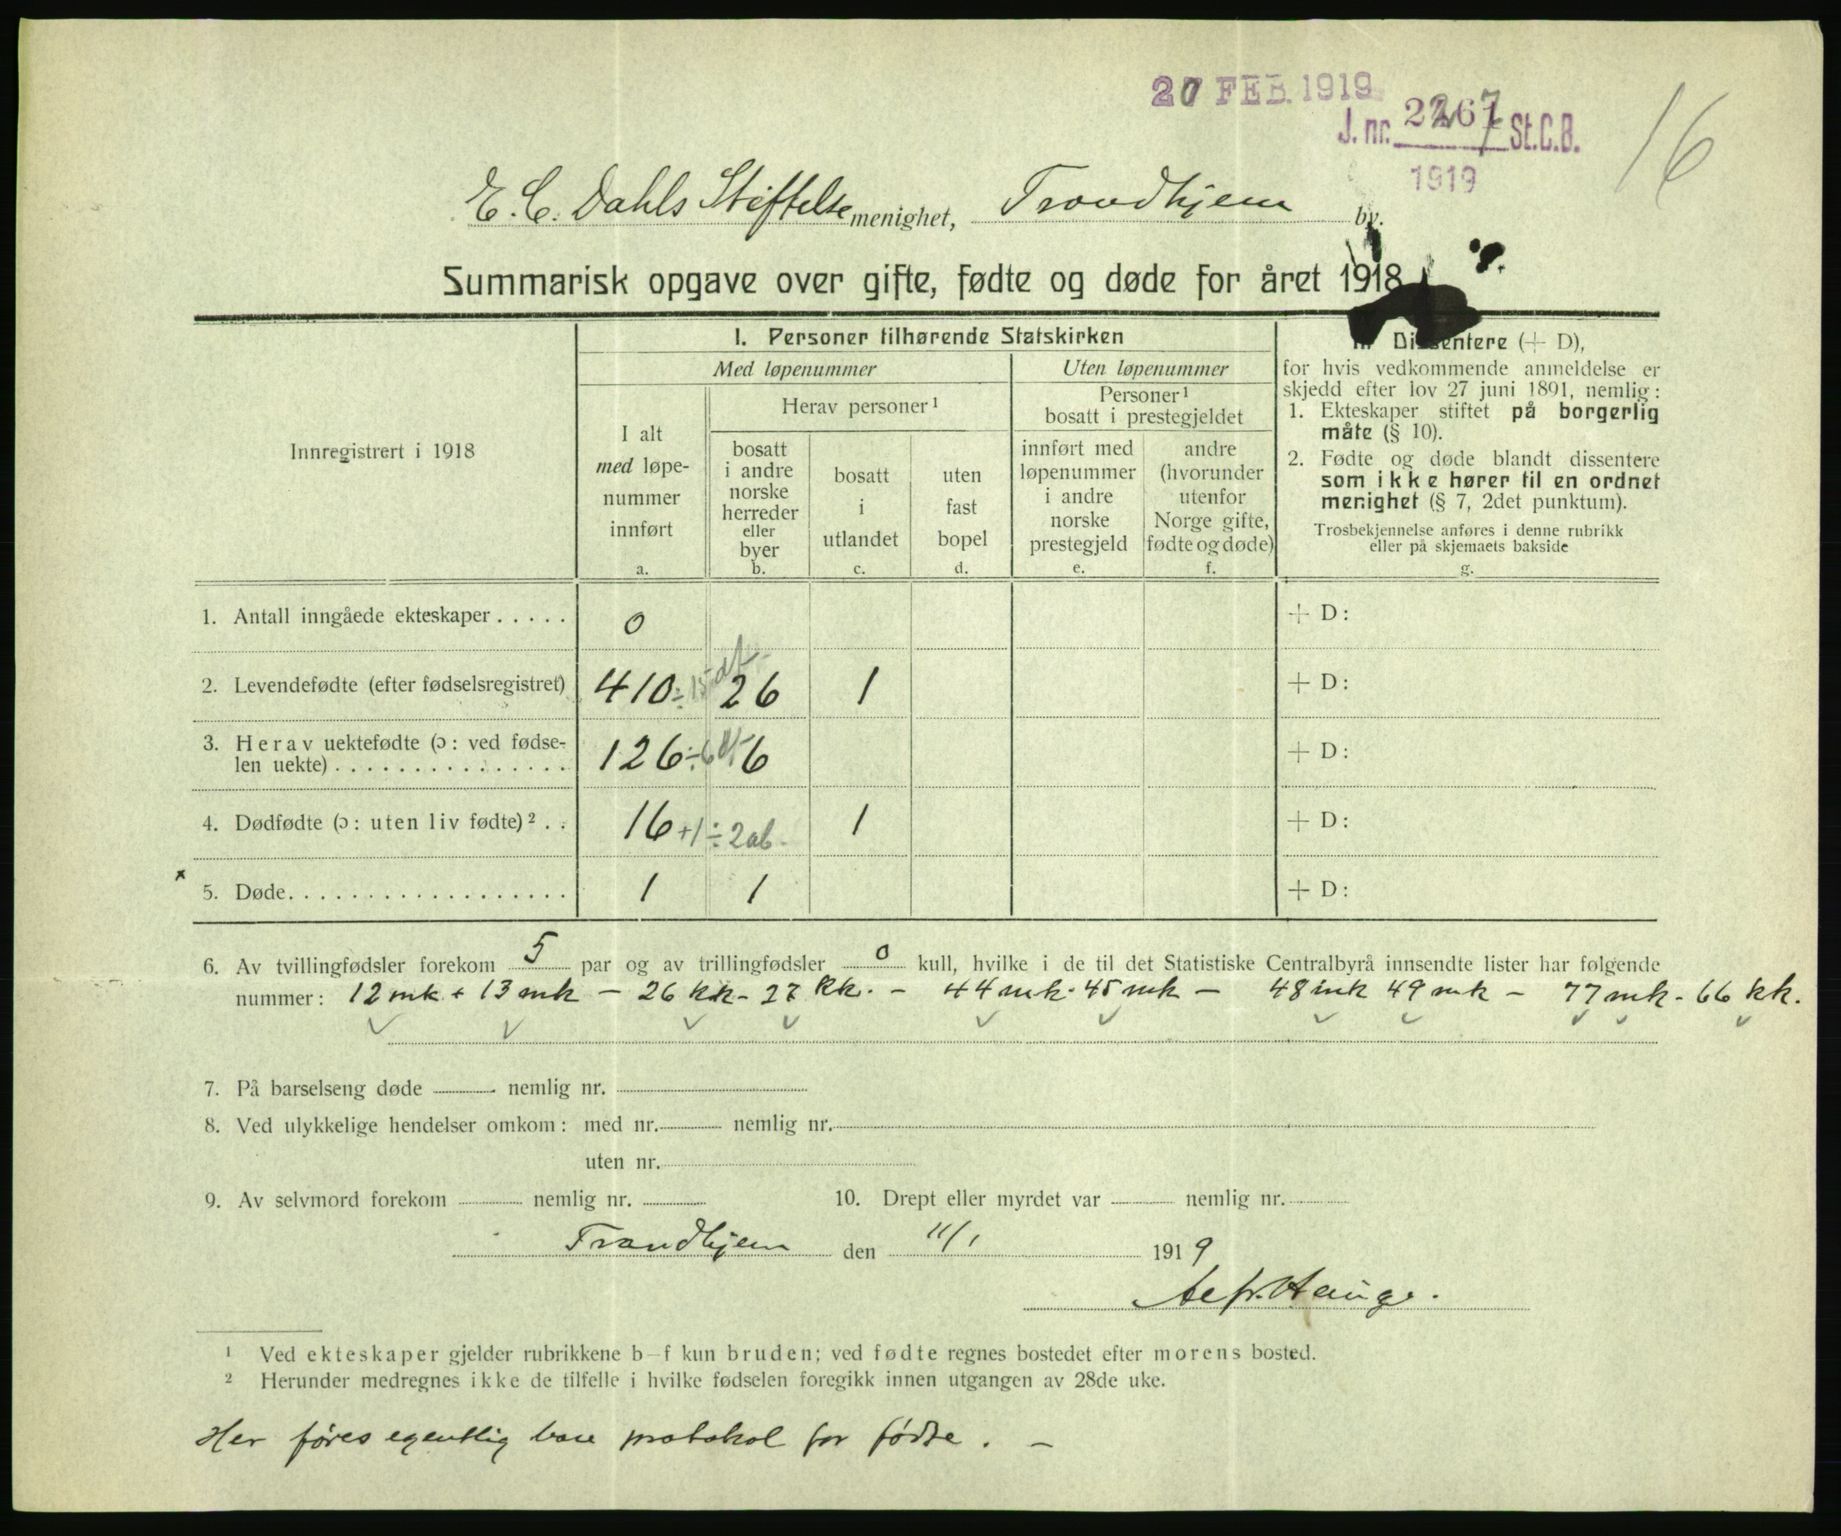 20 FEB. 1919
J. nr. 2267 St.C.B.
1919
16
E. C. Dahls Stiftelse menighet, Trondhjem by.
Summarisk opgave over gifte, fødte og døde for året 1918
Innregistrert i 1918
I. Personer tilhørende Statskirken
Med løpenummer
Uten løpenummer
Herav personer¹
Personer¹
bosatt i prestegjeldet
I alt
med løpe-
nummer
innført
a.
bosatt
i andre
norske
herreder
eller
byer
b.
bosatt
i
utlandet
c.
uten
fast
bopel
d.
innført med
løpenummer
i andre
norske
prestegjeld
e.
andre
(hvorunder
utenfor
Norge gifte,
fødte og døde)
f.
Dissentere (+ D),
for hvis vedkommende anmeldelse er
skjedd efter lov 27 juni 1891, nemlig:
1. Ekteskaper stiftet på borgerlig
måte (§ 10).
2. Fødte og døde blandt dissentere
som ikke hører til en ordnet
menighet (§ 7, 2det punktum).
Trosbekjennelse anføres i denne rubrikk
eller på skjemaets bakside
g.
1. Antall inngåede ekteskaper . . . . . 0 + D:
2. Levendefødte (efter fødselsregistret) 410 ÷ 15 df 26 1 + D:
3. Herav uektefødte (ɔ: ved fødse-
len uekte) . . . . . . . . . . . . . . . 126 ÷ 6 6 + D:
4. Dødfødte (ɔ: uten liv fødte)² . . 16 +1 ÷ 2ab. 1 + D:
5. Døde. . . . . . . . . . . . . . . . . . 1 1 + D:
6. Av tvillingfødsler forekom 5 par og av trillingfødsler 0 kull, hvilke i de til det Statistiske Centralbyrå innsendte lister har følgende
nummer: 12 mk + 13 mk – 26 kk – 27 kk. – 44 mk. 45 mk – 48 mk 49 mk – 77 mk – 66 kk.
7. På barselseng døde nemlig nr.
8. Ved ulykkelige hendelser omkom: med nr. nemlig nr.
uten nr.
9. Av selvmord forekom nemlig nr. 10. Drept eller myrdet var nemlig nr.
Trondhjem den 11/1 1919
Hauge.
¹ Ved ekteskaper gjelder rubrikkene b–f kun bruden; ved fødte regnes bostedet efter morens bosted.
² Herunder medregnes ikke de tilfelle i hvilke fødselen foregikk innen utgangen av 28de uke.
Her føres egentlig bare protokol for fødte. –